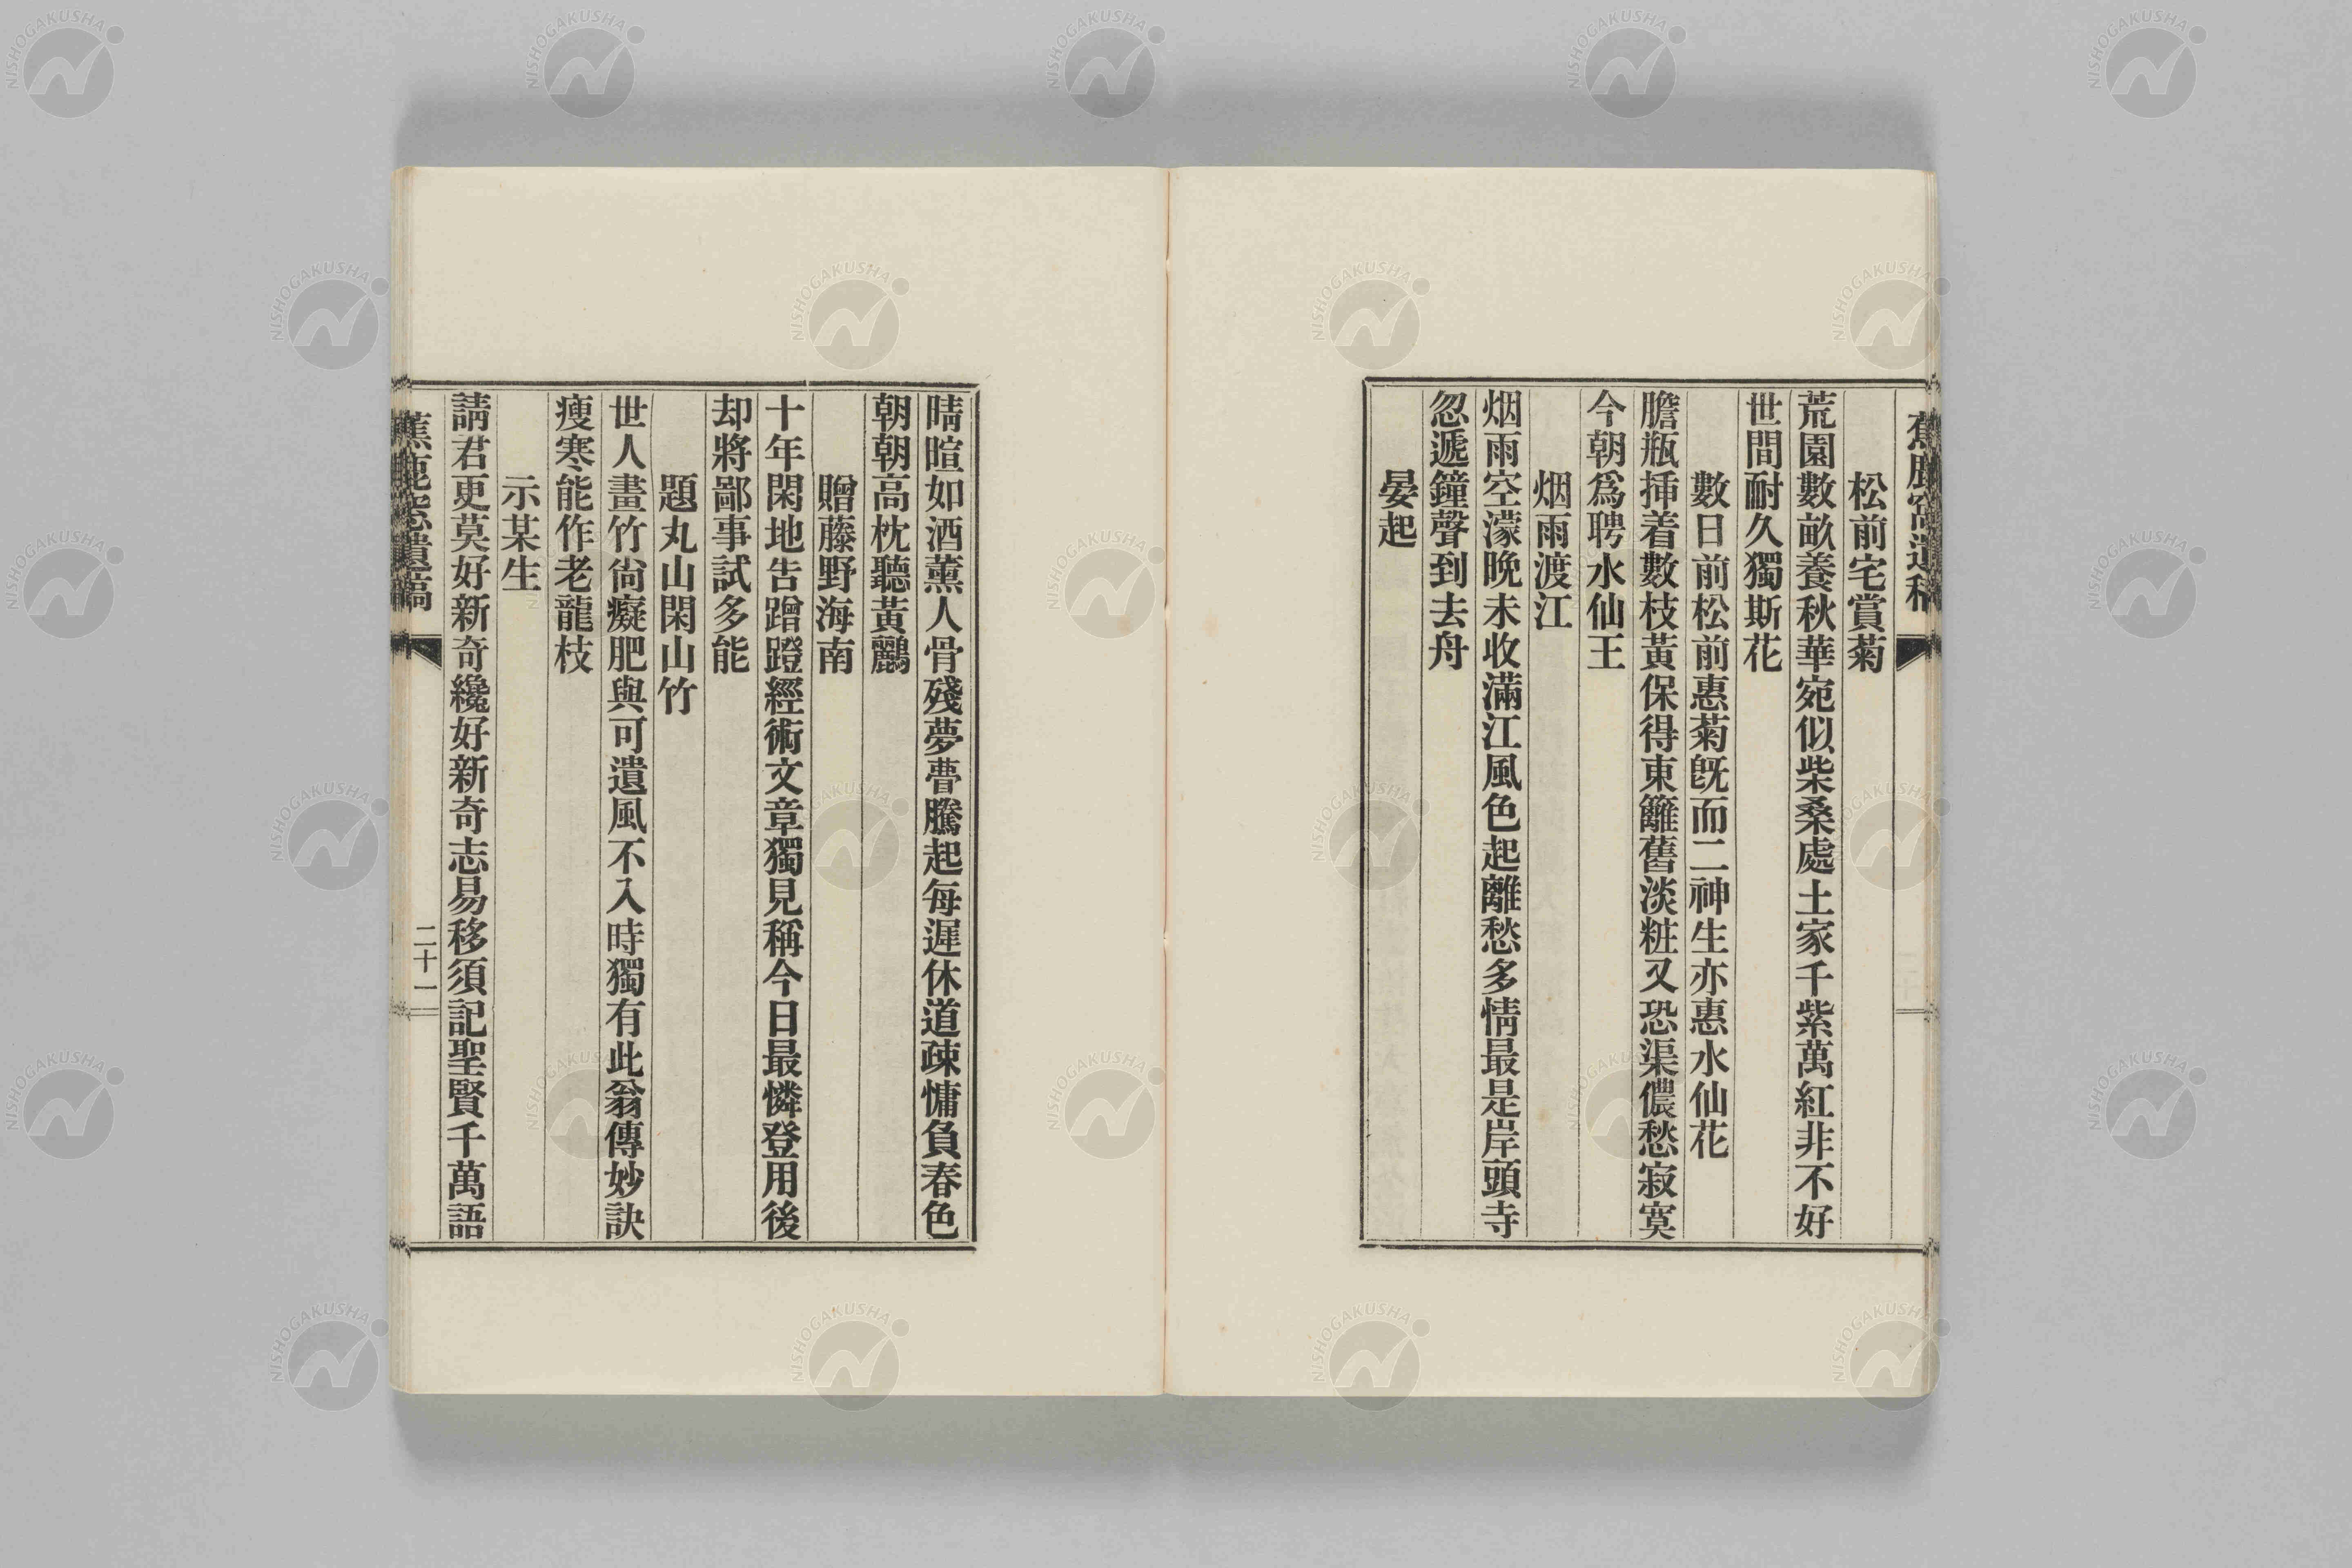 松前宅賞菊
荒園數畝養秋華宛似柴桑處士家千紫萬紅非不好
世間耐久獨斯花
數日前松前惠菊既而二神生亦惠水仙花
膽瓶挿着數枝黃保得東籬舊淡粧又恐渠儂愁寂寞
今朝爲聘水仙王
烟雨渡江
烟雨空濛晚未收滿江風色起離愁多情最是岸頭寺
忽遞鐘聲到去舟
晏起
晴暄如酒薰人骨殘夢瞢騰起每遲休道疎慵負春色
朝朝高枕聽黃鸝
贈藤野海南
十年閑地告蹭蹬經術文章獨見稱今日最憐登用後
却將鄙事試多能
題丸山閑山竹
世人畫竹尙癡肥與可遺風不入時獨有此翁傳妙訣
瘦寒能作老龍枝
示某生
請君更莫好新奇纔好新奇志易移須記聖賢千萬語
蕉鹿窓遺稿
二十一
NISHOGAKUSHA